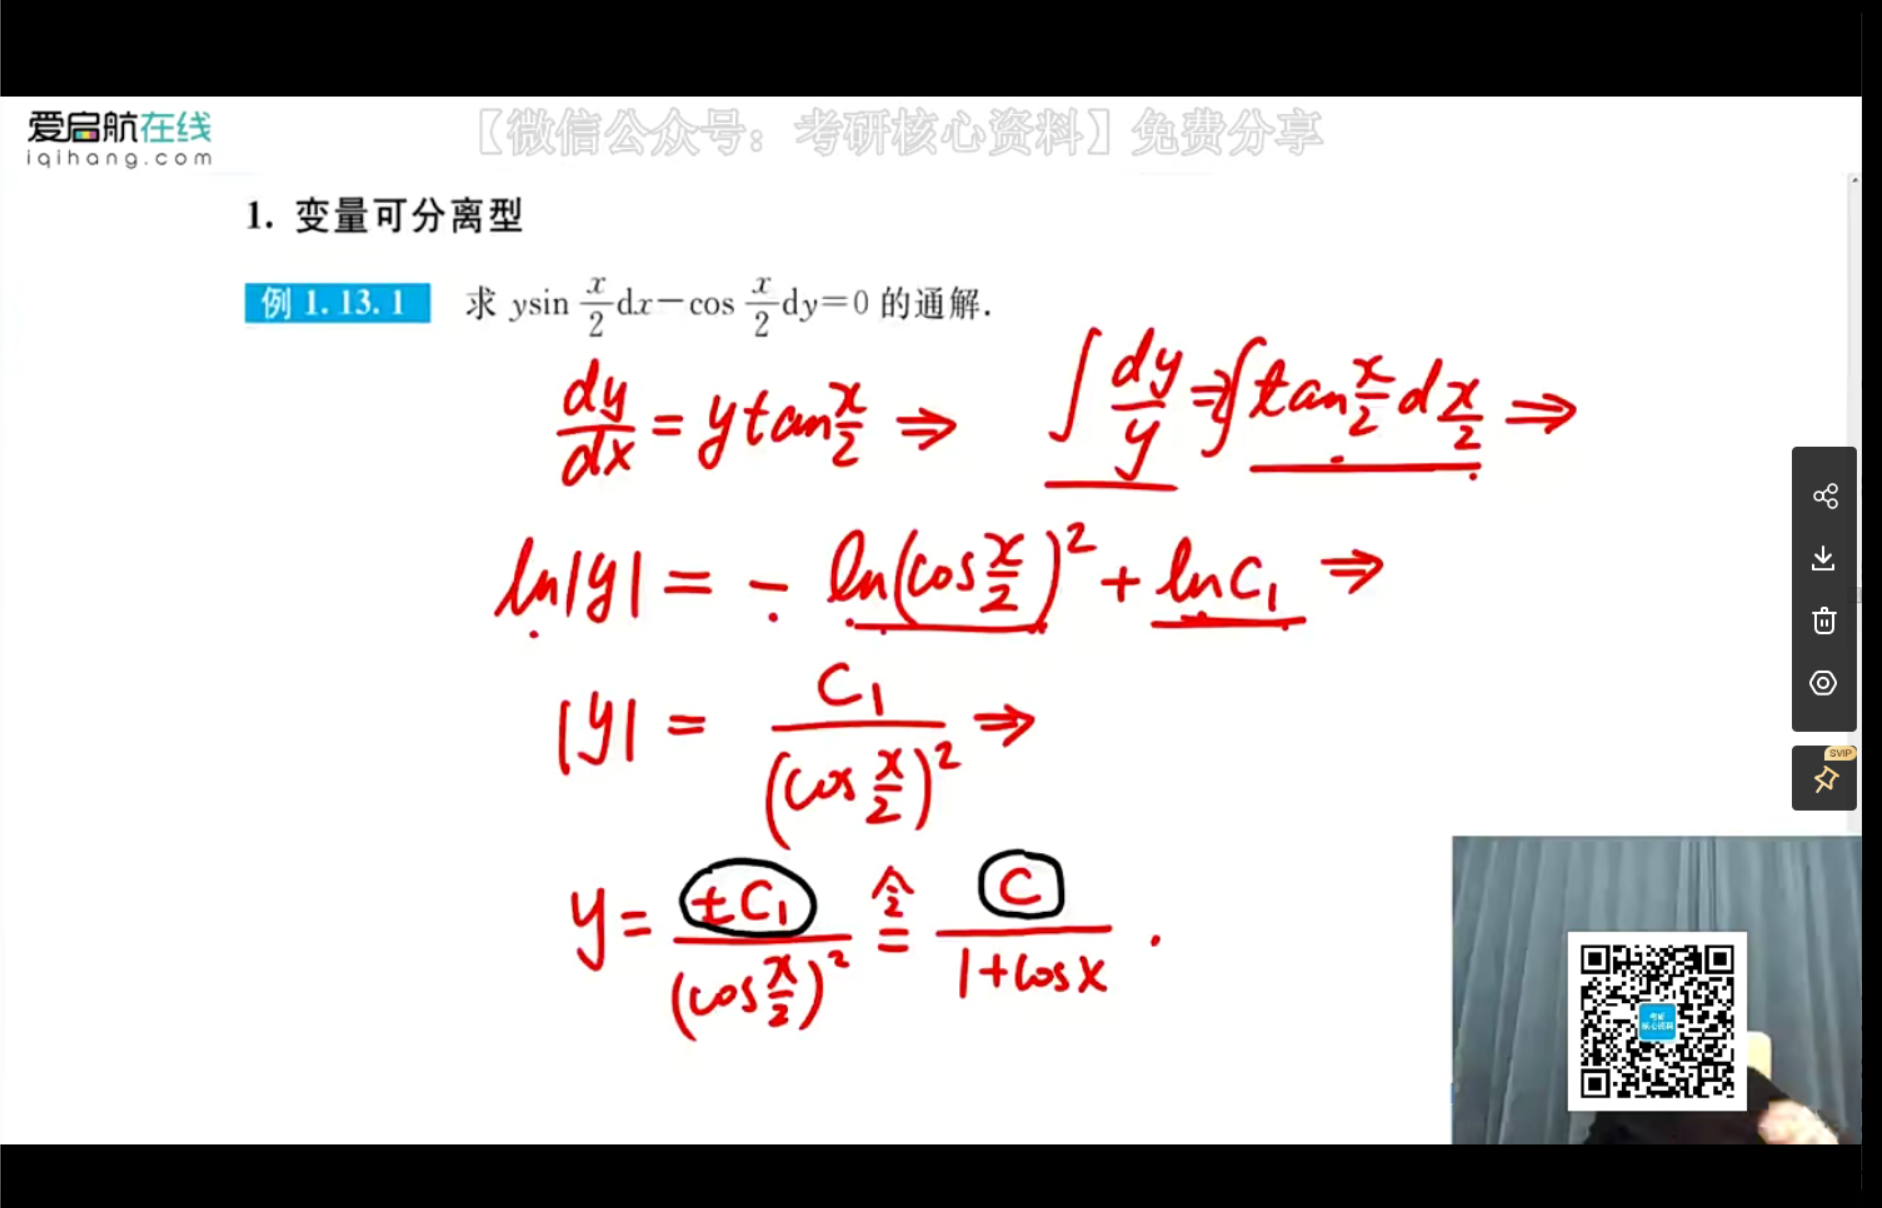 爱启航在线
iqihang.com
【微信公众号：考研核心资料】免费分享
1. 变量可分离型
例 1.13.1 求 ysin x/2 dx−cos x/2 dy=0 的通解.
dy/dx = y tan x/2 ⇒ ∫ dy/y = 2∫ tan x/2 d x/2 ⇒
ln|y| = − ln(cos x/2)² + ln C₁ ⇒
|y| = C₁/(cos x/2)² ⇒
y = ±C₁/(cos x/2)² 令= C/(1+cosx) .
SVIP
考研
核心资料